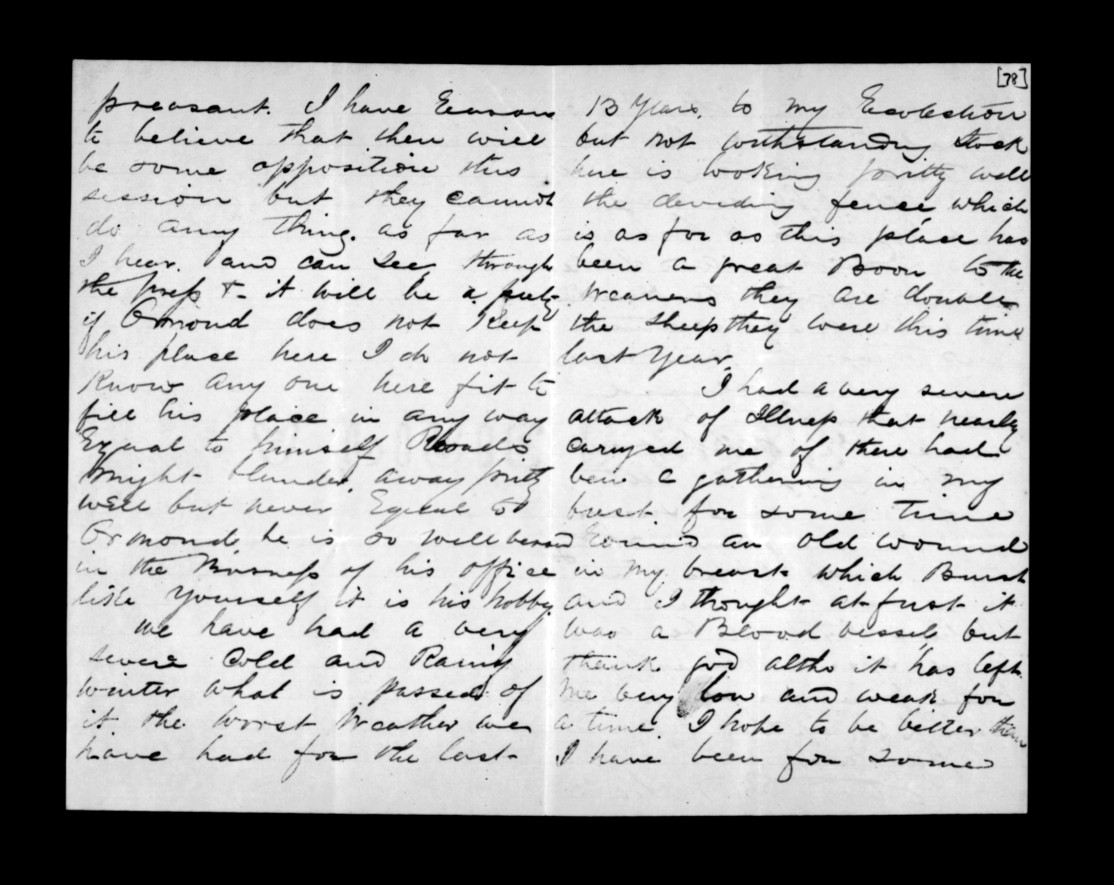 preasant. I have Reason
to believe that then will
be some opposition this
session but they cannot
do anny thing. as far as
I hear. and can see through
the press & - it will be a pity
if Ormond does not Keep
his place here I do not
Know any one here fit to
fill his place in any way
Equal to himself
might blunder away pritty
well but never Equal to
Ormond. he is so well versed
in the Business of his office
like Yourself it is his hobby
we have had a very
severe Cold and Rainy
winter what is passed of
it the worst Weather we
have had for the last
[78]
13 Years. to my Recolection
but not withstanding Stock
here is looking pritty well
the deviding fence which
is as far as this place has
been a great Boon to the
Weaners they are double
the sheep they were this time
last Year.
I had a very severe
attack of Illness that nearly
carryed me of there had
bein a gathering in my
brest for some time
round an old wound
in my breast which Burst
and I thought at first it
was a Blood vessel, but
thank god altho it has left
me very low and weak for
a time. I hope to be better then
I have been for some